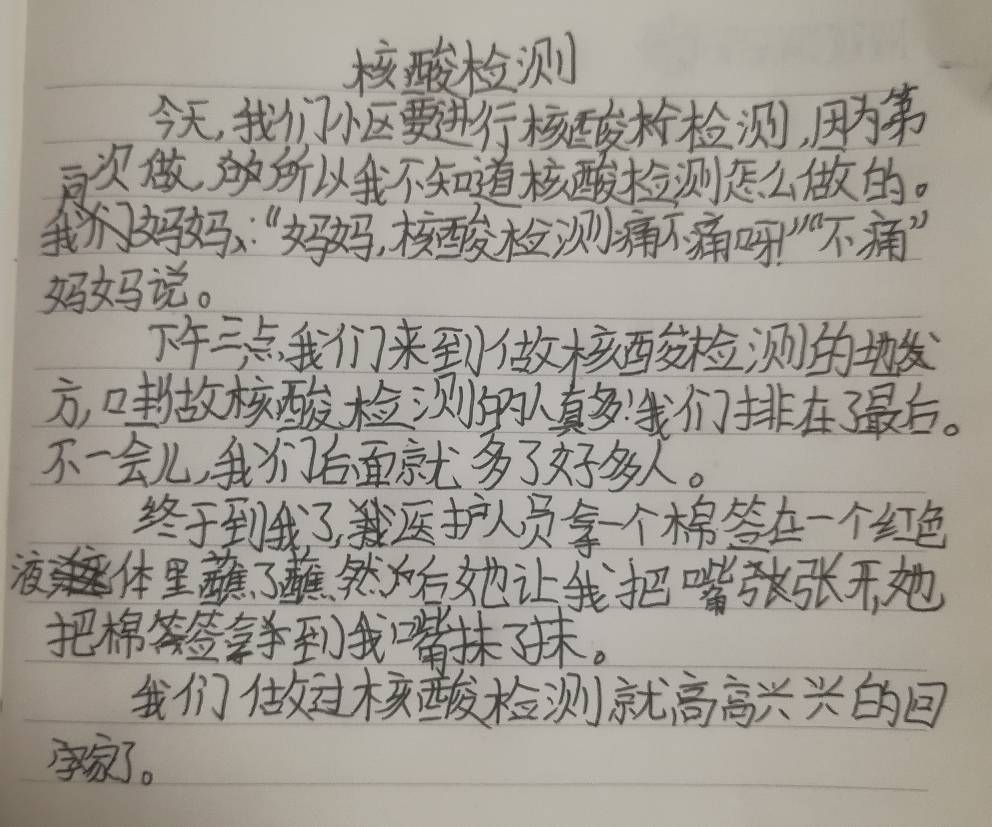 核酸检测
今天,我们小区要进行核酸检测,因为第
一次做,所以我不知道核酸检测怎么做的。
我问妈妈:“妈妈,核酸检测痛不痛呀!”“不痛”
妈妈说。
下午三点,我们来到做核酸检测的地
方,哇!做核酸检测的人真多!我们排在了最后。
不一会儿,我们后面就多了好多人。
终于到我了,医护人员拿一个棉签在一个红色
液体里蘸了蘸,然后她让我把嘴张张开,她
把棉签拿到我嘴抹了抹。
我们做过核酸检测就高高兴兴的回
家了。